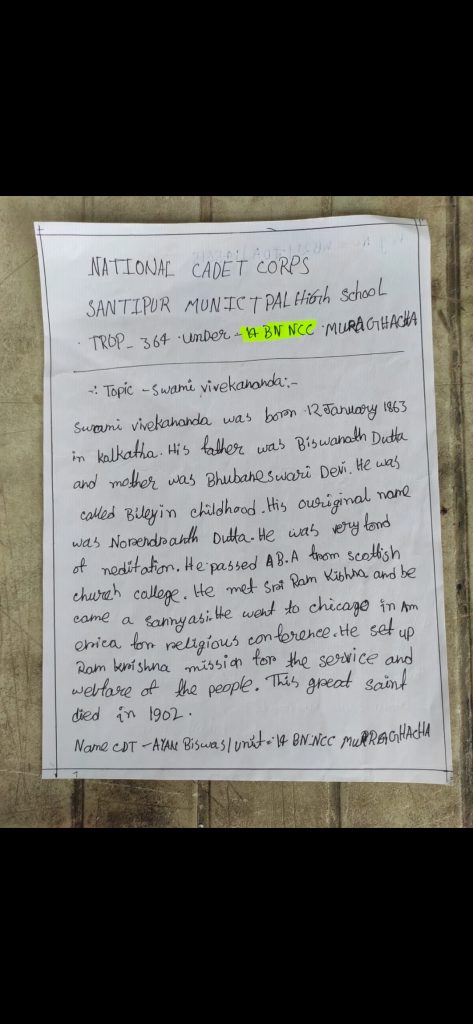 NATIONAL CADET CORPS
SANTIPUR MUNICTPAL High School
TROP_ 364 under - 17 BN NCC MURAGHACHA
-: Topic - Swami vivekananda:-
Swami vivekananda was born 12 January 1863
in kalkatha. His father was Biswanath Dutta
and mother was Bhubaneswari Devi. He was
called Biley in childhood. His ouriginal name
was Norendroanth Dutta. He was very fond
of neditation. He passed A B.A from scottish
church college. He met Sri Ram Kishna and be
came a sannyasi. He went to chicago in Am
erica for religious conference. He set up
Ram kerishna mission for the service and
welfare of the people. This great saint
died in 1902.
Name CDT - AYAN Biswas / unit - 17 BN NCC MURRAGHACHA